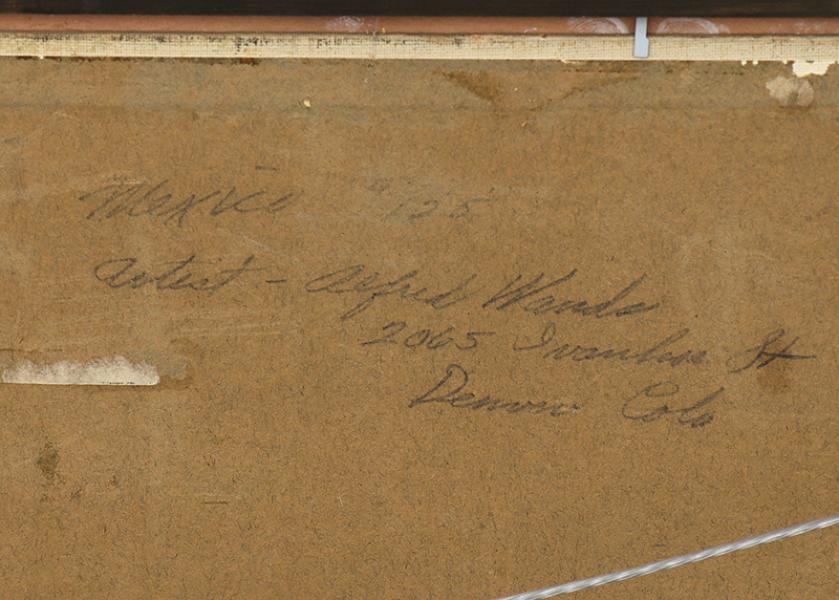 Mexico $125
Artist - Alfred Wands
2065 Ivanhoe St
Denver Colo